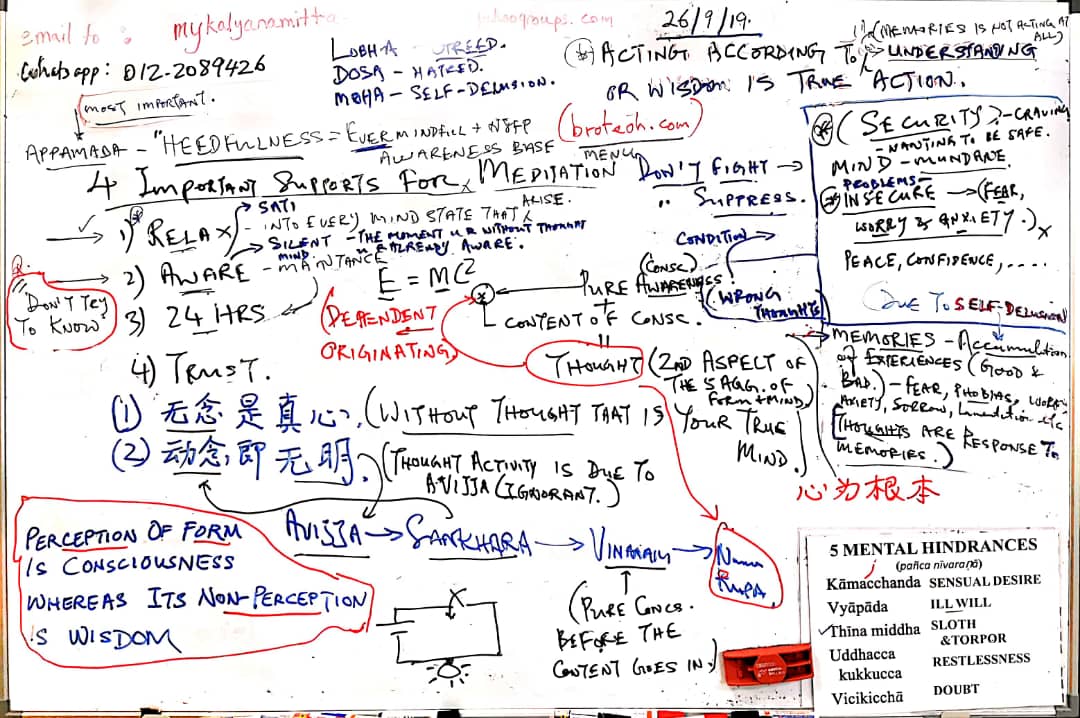 Email to : mykalyanamitta yahoogroups.com
Whatsapp: 012-2089426
26/9/19.
LOBHA - GREED.
DOSA - HATRED.
MOHA - SELF-DELUSION.
(MEMORIES IS NOT ACTING AT ALL)
ACTING ACCORDING TO UNDERSTANDING
OR WISDOM IS TRUE ACTION.
MOST IMPORTANT.
APPAMADA - "HEEDFULNESS = EVER MINDFULL +
AWARENESS BASE
(broteoh.com)
MENU
4 IMPORTANT SUPPORTS FOR MEDITATION
1) RELAX
SATI
- INTO EVERY MIND STATE THAT
ARISE.
SILENT MIND - THE MOMENT U R WITHOUT THOUGHT
U R ALREADY AWARE.
2) AWARE - MAINTANCE
3) 24 HRS
4) TRUST.
"DON'T TRY
TO KNOW"
E = MC2
(DEPENDENT
ORIGINATING)
DON'T FIGHT
" SUPPRESS.
CONDITION
(CONSC)
PURE AWARENESS.
+
CONTENT OF CONSC.
(WRONG
THOUGHTS)
THOUGHT (2ND ASPECT OF
THE 5 AGG. OF
FORM + MIND)
(SECURITY) - CRAVING
- WANTING TO BE SAFE.
MIND - MUNDANE
PROBLEMS -
INSECURE (FEAR,
WORRY & ANXIETY.)
PEACE, CONFIDENCE, ....
DUE TO SELF-DELUSION
MEMORIES - Accumulation
of EXPERIENCES (GOOD &
BAD.) - FEAR, PHOBIAS, WORRY
ANXIETY, SORROW, Lamentation etc
[THOUGHTS ARE RESPONSE TO
MEMORIES.)
心为根本
(1) 无念是真心, (WITHOUT THOUGHT THAT IS YOUR TRUE
MIND.)
(2) 动念, 即无明. (THOUGHT ACTIVITY IS DUE TO
AVIJJA (IGNORANT.)
AVIJJA → SANKHARA → VINANAM → Nama
RUPA
(PURE CONCS.
BEFORE THE
CONTENT GOES IN)
PERCEPTION OF FORM
IS CONSCIOUSNESS
WHEREAS ITS NON-PERCEPTION
IS WISDOM
5 MENTAL HINDRANCES
(pañca nīvaraṇā)
Kāmacchanda SENSUAL DESIRE
Vyāpāda ILL WILL
Thīna middha SLOTH
&TORPOR
Uddhacca
kukkucca RESTLESSNESS
Vicikicchā DOUBT